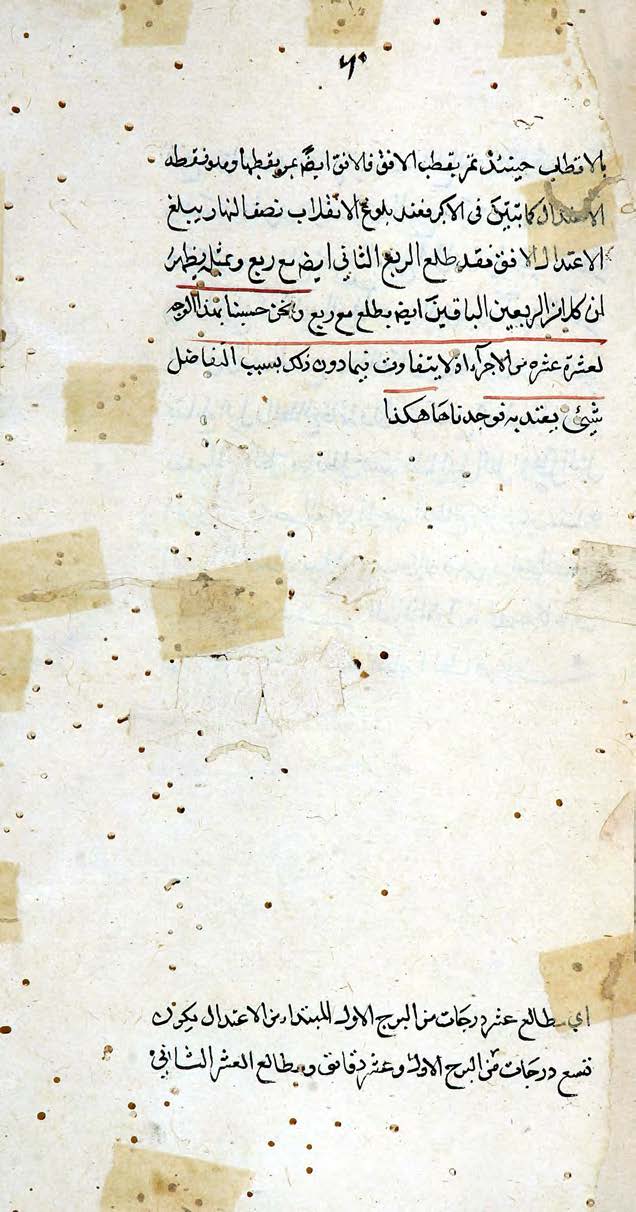 ٦٠
بالاقطاب حينئذ تمر بقطب الافق فالافق ايضا يمر بقطبها ومنه نقطة
الاعتدال كما تبين في الاكر فعند بلوغ الانقلاب نصف النهار يبلغ
الاعتدال الافق فقد طلع الربع الثاني ايضا مع ربع وبمثله يظهر
ان كلا من الربعين الباقيين ايضا يطلع مع ربع ونحن حسبنا بهذا الوجه
لعشرة عشرة من الاجزاء اذ لا يتفاوت فيما دون ذلك بسبب التفاضل
شيئ يعتد به فوجدناها هكذا
اي مطالع عشر درجات من البرج الاول المبتدا من الاعتدال يكون
تسع درجات من البرج الاول وعشر دقائق ومطالع العشر الثاني